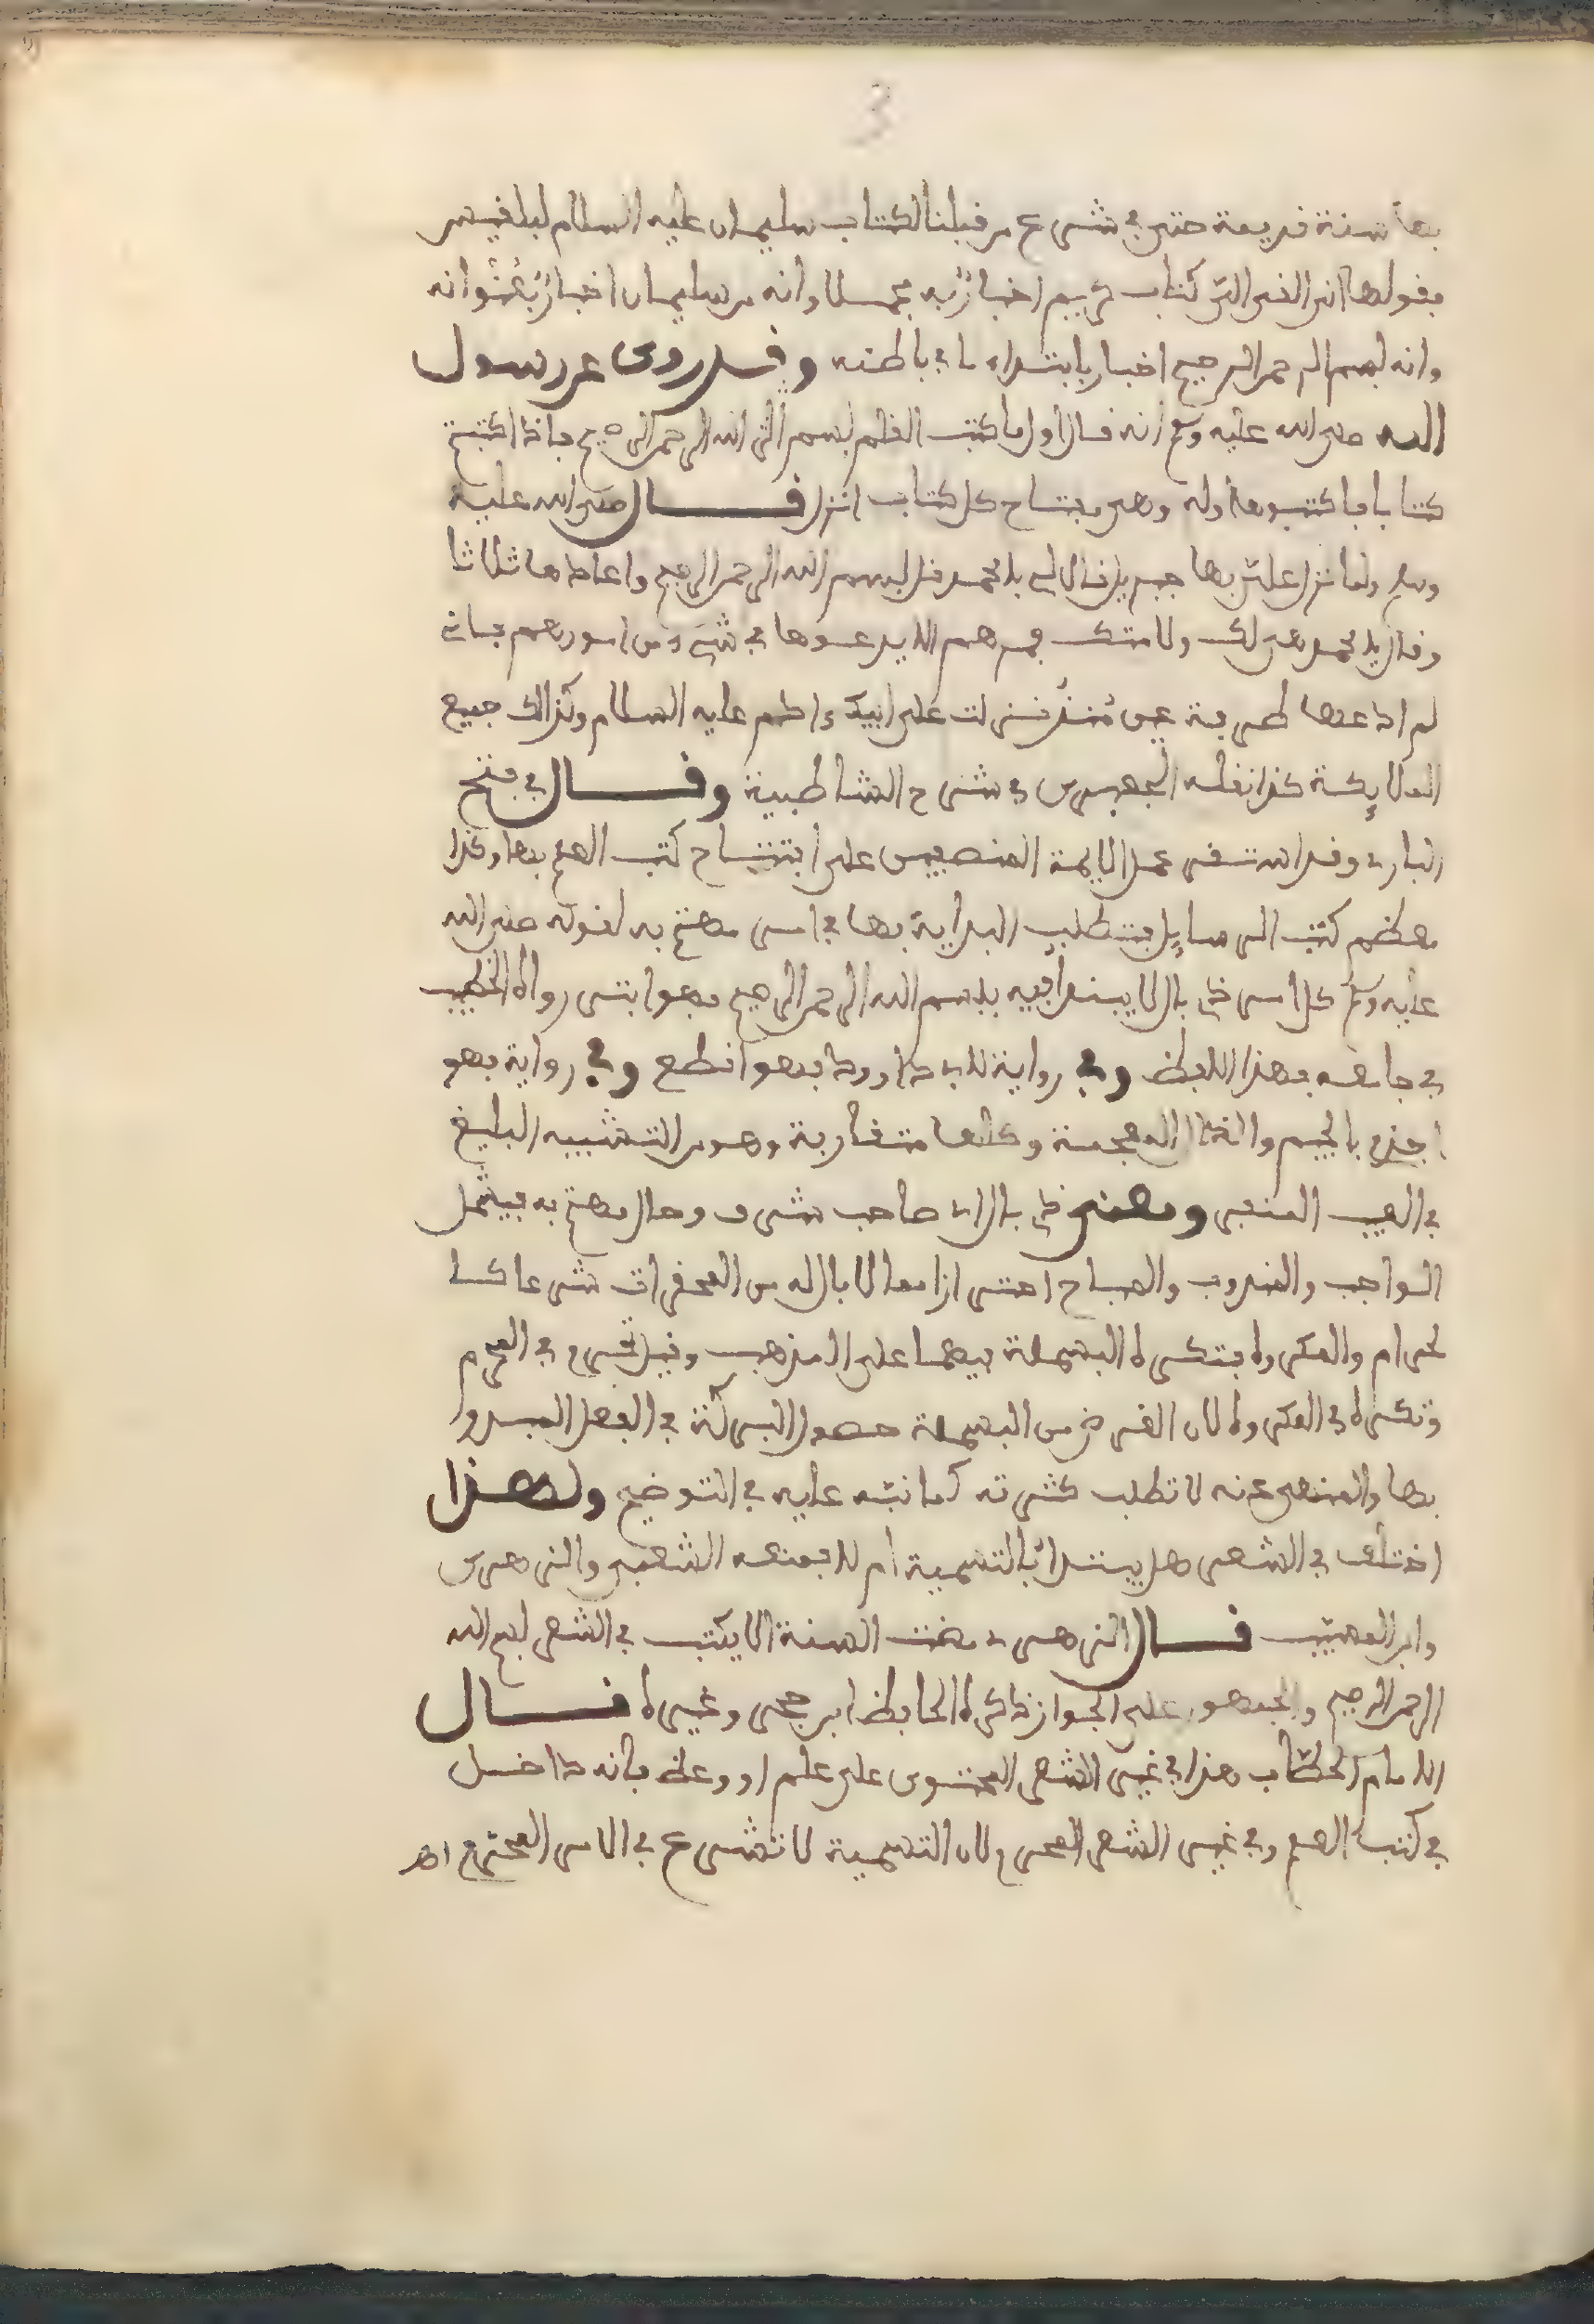 3
بها سنة قديمة حتى في شرع من قبلنا لكتاب سليمان عليه السلام لبلقيس
بقولها اني القي الي كتاب كريم اخبار به مجملا وانه من سليمان اخبار بعنوانه
وانه بسم الله الرحمن الرحيم اخبار بابتداء ما في باطنه وقد روى عن رسول
الله صلى الله عليه وسلم انه قال اول ما كتب القلم بسم الله الرحمن الرحيم فاذا كتبتم
كتابا فاكتبوها اوله وهي مفتاح كل كتاب انزل قال صلى الله عليه
وسلم ولما نزل علي بها جبريل قال لي يا محمد قل بسم الله الرحمن الرحيم واعادها ثلاثا
وقال يا محمد هي لك ولامتك فمرهم الا يدعوها في شيء من امورهم فاني
لم ادعها طرفة عين منذ نزلت على ابيك ءادم عليه السلام وكذالك جميع
الملايكة كذا نقله الجعبري في شرح الشاطبية وقال في فتح
الباري وقد استقر عمل الايمة المنصبين على افتتاح كتب العلم بها وكذا
معظم كتب الرسايل فتطلب البداية بها في امر مهتم به لقوله صلى الله
عليه وسلم كل امر ذي بال لا يبتدا فيه ببسم الله الرحمن الرحيم فهو ابتر رواه الخطيب
في جامعه بهذا اللفظ وفي رواية لابي داوود فهو اقطع وفي رواية فهو
اجذم بالجيم والذال المعجمة وكلها متقاربة وهو من التشبيه البليغ
في العيب المنفر ومعنى ذي بال اي صاحب شرف وحال مهتم به فيشمل
الواجب والمندوب والمباح احترازا مما لا بال له من المحقرات شرعا كا
لحرام والمكروه فتكره البسملة فيهما على المذهب وقيل تحرم في المحرم
وتكره في المكروه لان الغرض من البسملة حصول البركة في الفعل المبدوء
بها والمنهي عنه لا تطلب كثرته كما نبه عليه في التوضيح ولهذا
اختلف في الشعر هل يبتدا بالتسمية ام لا فمنعه الشعبي والزهري
وابن المسيب قال الزهري مضت السنة الا يكتب في الشعر بسم الله
الرحمن الرحيم والجمهور على الجواز ذكره الحافظ ابن حجر وغيره قال
الامام الحطاب هذا في غير الشعر المحتوي على علم او وعظ فانه داخل
في كتب العلم وفي غير الشعر المحرم لان التسمية لا تشرع في الامر المحرم اهـ